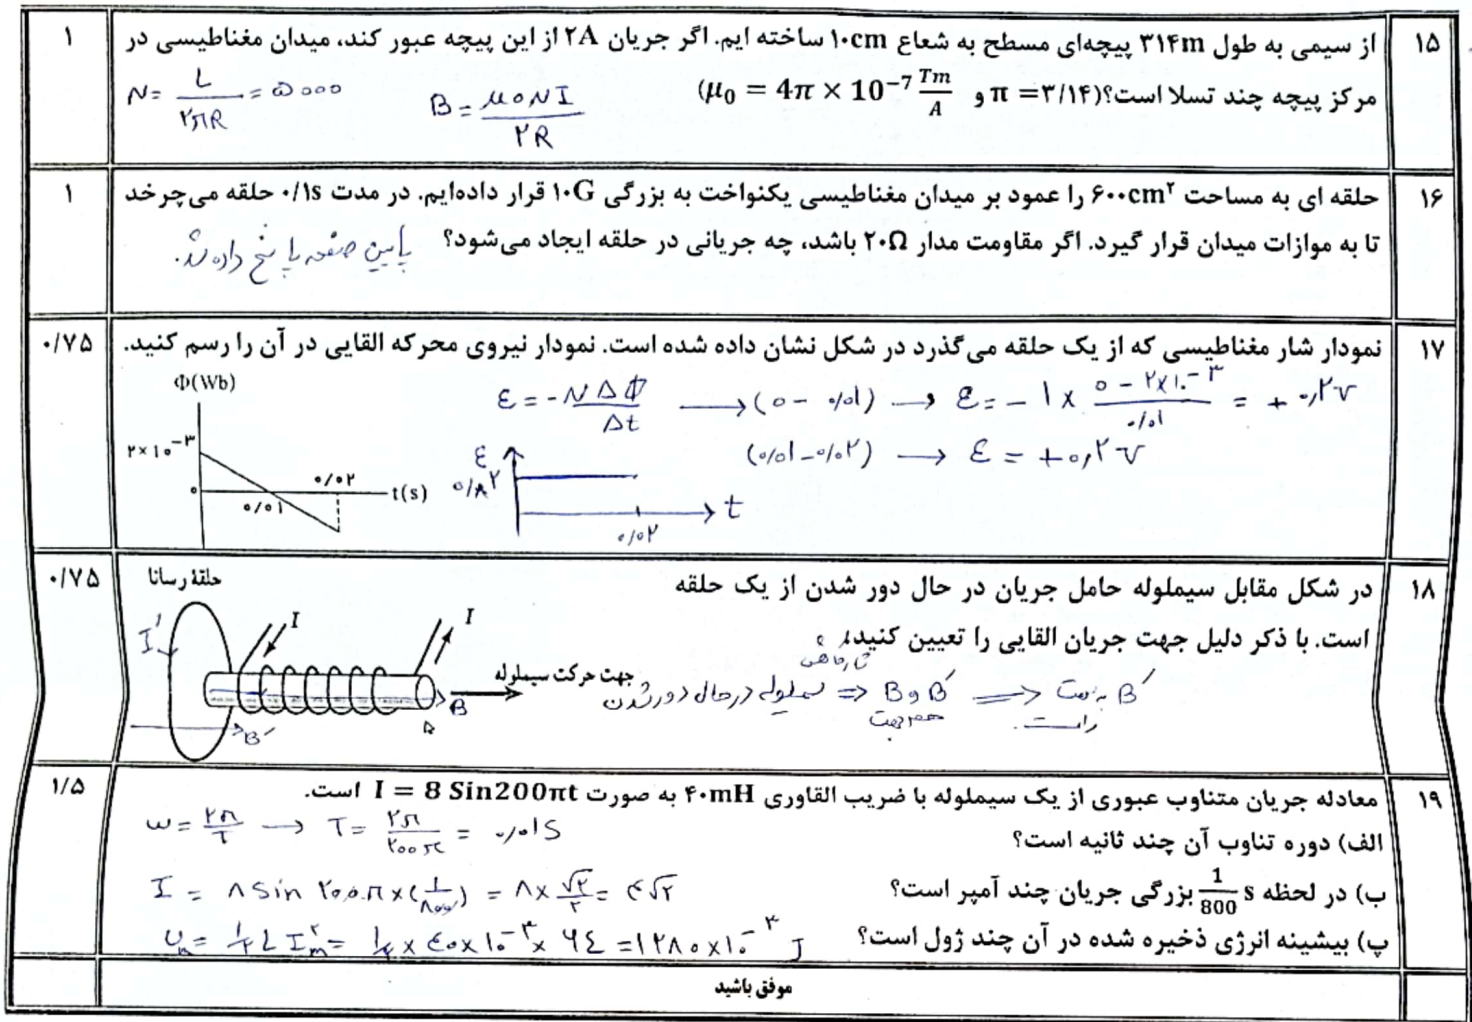 ۱۵
از سیمی به طول ۳۱۴m پیچه‌ای مسطح به شعاع ۱۰cm ساخته ایم. اگر جریان ۲A از این پیچه عبور کند، میدان مغناطیسی در
۱
مرکز پیچه چند تسلا است؟(π =۳/۱۴ و μ₀ = 4π × 10⁻⁷ Tm/A)
B = μ₀NI/۲R
N = L/۲πR = ۵۰۰۰
۱۶
حلقه ای به مساحت ۶۰۰cm² را عمود بر میدان مغناطیسی یکنواخت به بزرگی ۱۰G قرار داده‌ایم. در مدت ۰/۱s حلقه می‌چرخد
۱
تا به موازات میدان قرار گیرد. اگر مقاومت مدار ۲۰Ω باشد، چه جریانی در حلقه ایجاد می‌شود؟
پایین صفحه پاسخ داده شد.
۱۷
نمودار شار مغناطیسی که از یک حلقه می‌گذرد در شکل نشان داده شده است. نمودار نیروی محرکه القایی در آن را رسم کنید.
۰/۷۵
Φ(Wb)
۲×۱۰⁻³
۰
۰/۰۱
۰/۰۲
t(s)
ε = -NΔΦ/Δt → (۰ - ۰/۰۱) → ε = - ۱ × (۰ - ۲×۱۰⁻³)/۰/۰۱ = + ۰,۲v
(۰/۰۱-۰/۰۲) → ε = +۰,۲v
ε
t
۰/۰۲
۱۸
در شکل مقابل سیملوله حامل جریان در حال دور شدن از یک حلقه
۰/۷۵
است. با ذکر دلیل جهت جریان القایی را تعیین کنید.
حلقهٔ رسانا
I
I
I'
جهت حرکت سیملوله
B
B'
سیملوله در حال دور شدن ⇒ B و B' هم جهت ⇒ B' به سمت راست.
۱۹
معادله جریان متناوب عبوری از یک سیملوله با ضریب القاوری ۴۰mH به صورت I = 8 Sin200πt است.
۱/۵
الف) دوره تناوب آن چند ثانیه است؟
ω = ۲π/T → T = ۲π/۲۰۰π = ۰/۰۱S
ب) در لحظه 1/800 s بزرگی جریان چند آمپر است؟
I = ۸ Sin ۲۰۰π×(۱/۸۰۰) = ۸× √۲/۲ = ۴√۲
پ) بیشینه انرژی ذخیره شده در آن چند ژول است؟
= ۱/۲ L Iₘ² = ۱/۲ × ۴۰×۱۰⁻³ × ۶۴ = ۱۲۸۰×۱۰⁻³ J
موفق باشید